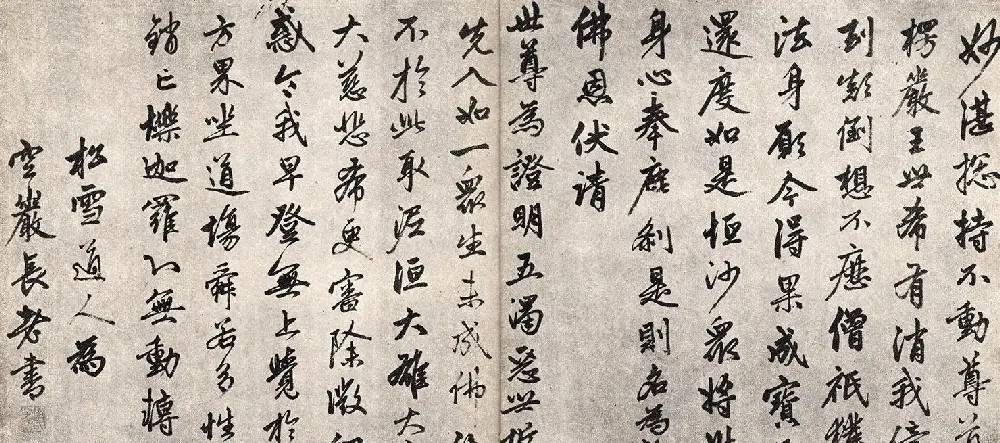 妙湛捴持不動尊首
楞嚴王世希有消我
到顛倒想不歷僧祇獲
法身願今得果成寶
還度如是恒沙眾將此
身心奉塵刹是則名為
佛恩伏請
世尊為證明五濁惡世誓
先入如一眾生未成佛
不於此取泥洹大雄大
大慈悲希更審除微
惑令我早登無上覺於
方界坐道場舜若多性
銷亡爍迦羅心無動轉
松雪道人為
空巖長老書